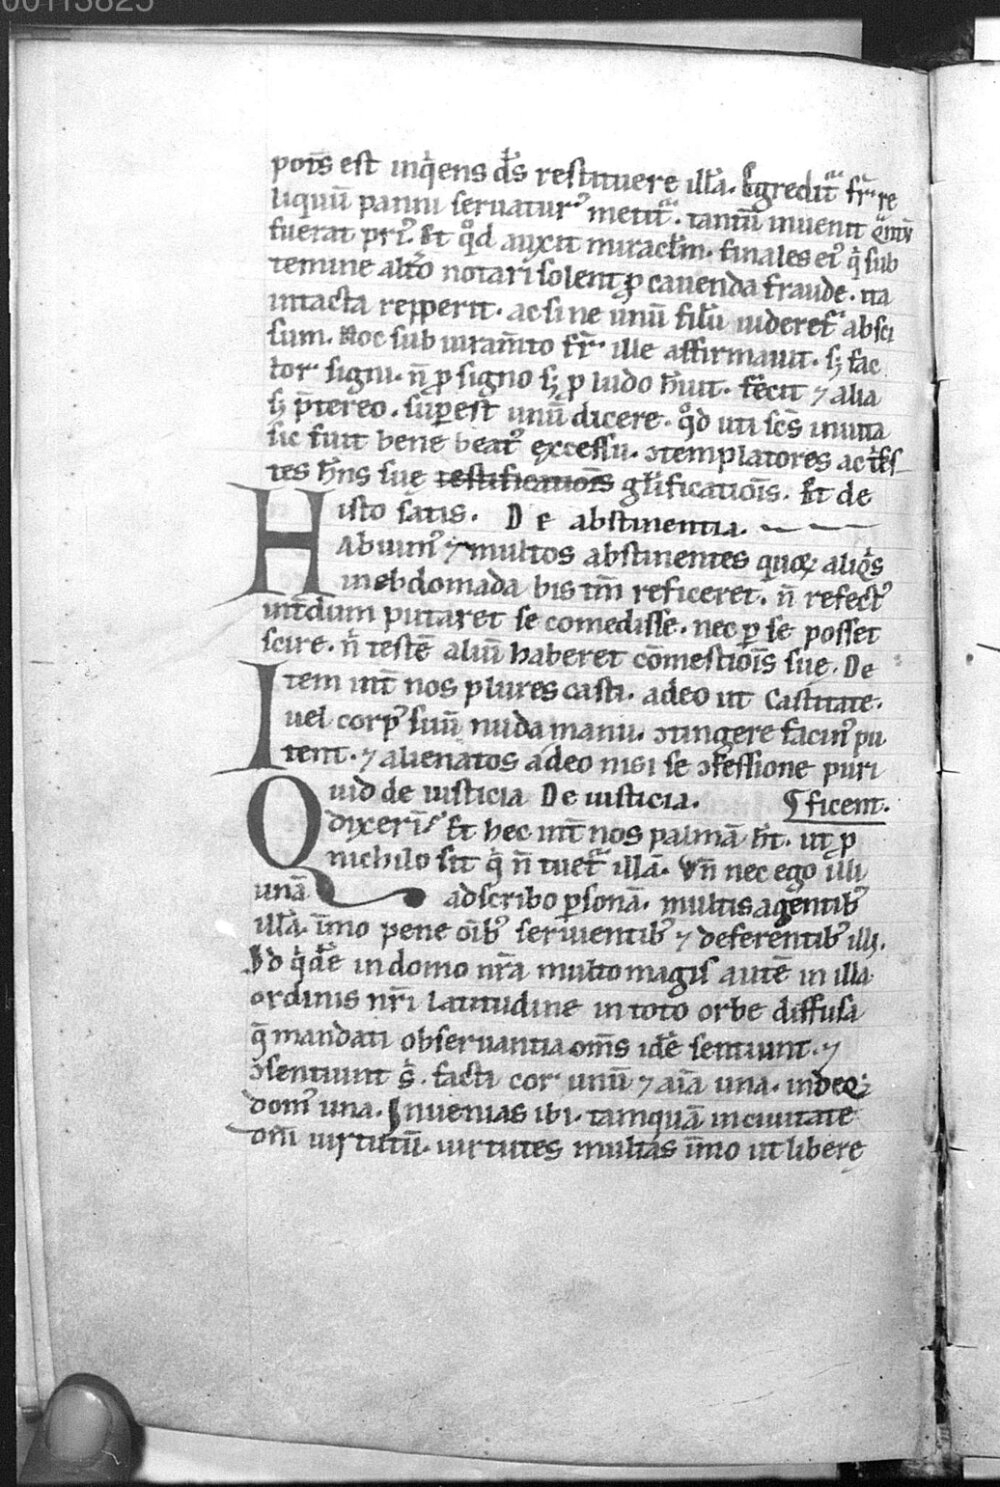 00113825
por̄s est inq̇ens d̄s restituere illā. Egredit᷑ fr̄ re
liquū panni seruatur᷒ metit᷑. tantū inuenit
fuerat pri᷒. Et qͦd auxit miraclm̄. finales ei᷒ q̇ sub
temine altͦo notari solent ꝓ cauenda fraude. ita
intacta repperit. ac si ne unū filū uideret᷑ absci
sum. Hoc sub iuram̄to fr̄ ille affirmauit. sꝫ fac
tor signi. n̄ ꝓ signo sꝫ ꝓ ludo h̄uit. fecit ⁊ alia
sꝫ p̄tereo. suꝑest unū dicere. qͦd uti sc̄s in uita
sic fuit bene beat᷒ excessu. ↄtemplatores ac
tes h̄ns sue testificatiōīs glīficatiōīs. Et de
isto satis. De abstinentia.
Habuim᷒ ⁊ multos abstinentes quoꝝ aliq̇s
in ebdomada bis tm̄ reficeret. n̄ refect᷒
int̄dum putaret se comedisse. nec ꝑ se posset
scire. n̄ testē aliū haberet cōmestiōīs sue. De
Item int̄ nos plures casti. adeo ut castitate.
uel corp᷒ suū nuda manu. ↄtingere facin᷒ pu
tent. ⁊ alienatos adeo nisi se ↄfessione puri
¶ ficent.
Quid de iusticia De iusticia.
dixeri᷒ Et hec int̄ nos palmā h̄t. ut ꝓ
nichilo sit q̇ n̄ tuet᷑ illā. Vn̄ nec ego illi
unā adscribo ꝑsonā. multis agentib᷒
illā. īmo pene oīb᷒ seruientib᷒ ⁊ deferentib᷒ illi.
Id q̇dē in domo nr̄a multo magis autē in illa
ordinis nr̄i latitudine in toto orbe diffusa
q̄ mandati obseruantia om̄s idē sentiunt. ⁊
ↄsentiunt s̄. facti cor unū ⁊ aīa una. indeqꝫ
dom᷒ una. Inuenias ibi. tamquā in ciuitate
om̄i uirtutū. uirtutes multas īmo ut libere